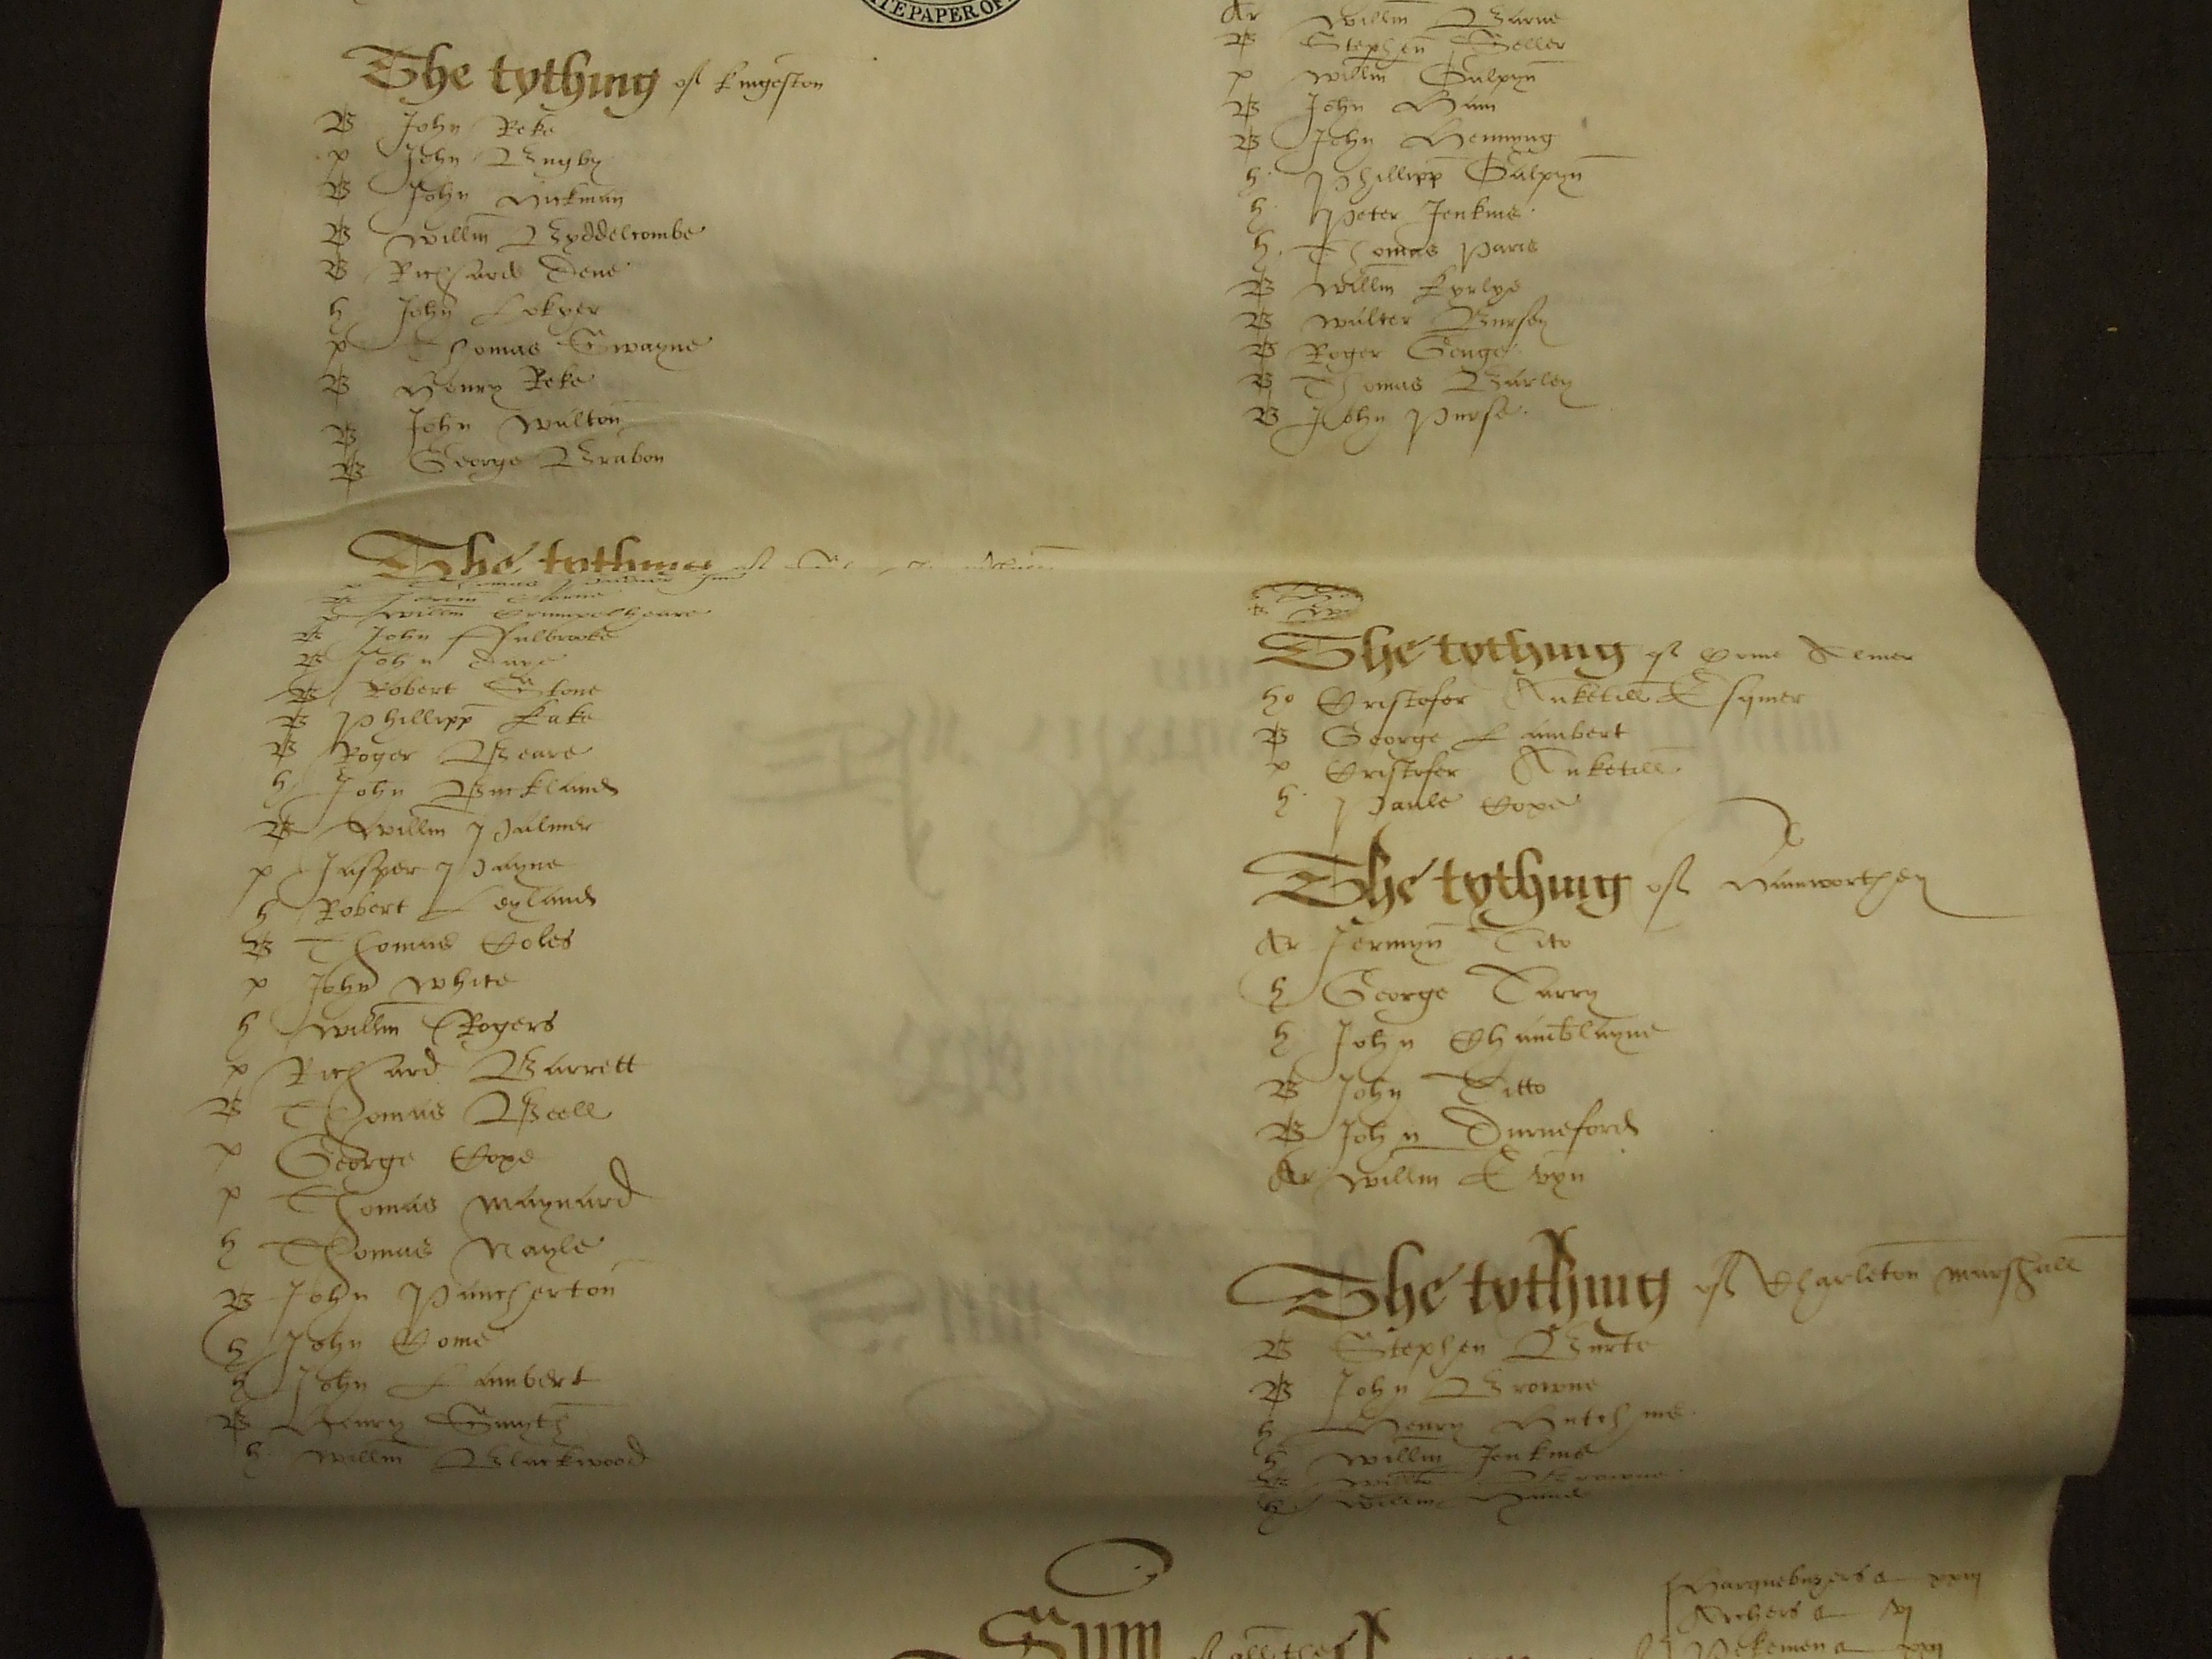 The tything of Kingeston
B John Reke
p John Bugby
B John Hickman
B Willm Byddelcombe
B Richard Dene
h John Lokyer
p Thomas Swayne
B Henry Reke
B John Walton
B George Brabon
The tything of
Thomas
Willm
B John Fulbrooke
B John
B Robert Stone
B Phillipp Cake
B Roger Beare
h John Buckland
B Willm Palmer
p Jasper Payne
h Robert Leyland
B Thomas Coles
p John White
h Willm Rogers
p Richard Barrett
B Thomas Bell
p George Cope
p Thomas Maynard
h Thomas Nayle
B John Puncherton
h John Come
h John Lambert
B Henry Smyth
h Willm Blackwood
ATE PAPER OF
Ar Willm Barne
B Stephen Seller
p Willm Galpyn
B John
B John Hennyng
h Phillipp Galpyn
h Peter Jenkins
h Thomas Paris
B Willm Kyrlye
B Walter Bursey
B Roger Genge
B Thomas Barley
B John Purse
The tything of
ho Cristofer Anketill Esqmer
B George Lambert
p Cristofer Anketill
h Paule Cope
The tything of Hamworthey
Ar Jermyn Tito
h George Tarry
h John Chamblayne
B John Titto
B John Durneford
Ar Willm Evyn
The tything of Charleton Marshall
B Stephen Burte
B John Browne
h Henry Hutchins
h Willm Jenkins
Browne
h Willm
Harquebuzers xxiij
Sum of all thes
Archers vj
Pekemen